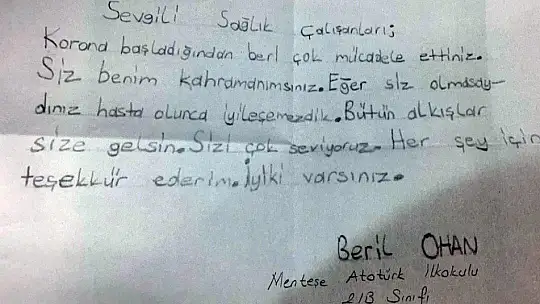 Sevgili Sağlık Çalışanları;
Korona başladığından beri çok mücadele ettiniz.
Siz benim kahramanımsınız. Eğer siz olmasay-
dınız hasta olunca iyileşemezdik. Bütün alkışlar
size gelsin. Sizi çok seviyoruz. Her şey için
teşekkür ederim. İyiki varsınız.
Beril OHAN
Menteşe Atatürk İlkokulu
2/B Sınıfı